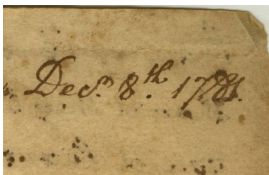 Decr. 8th. 1781.